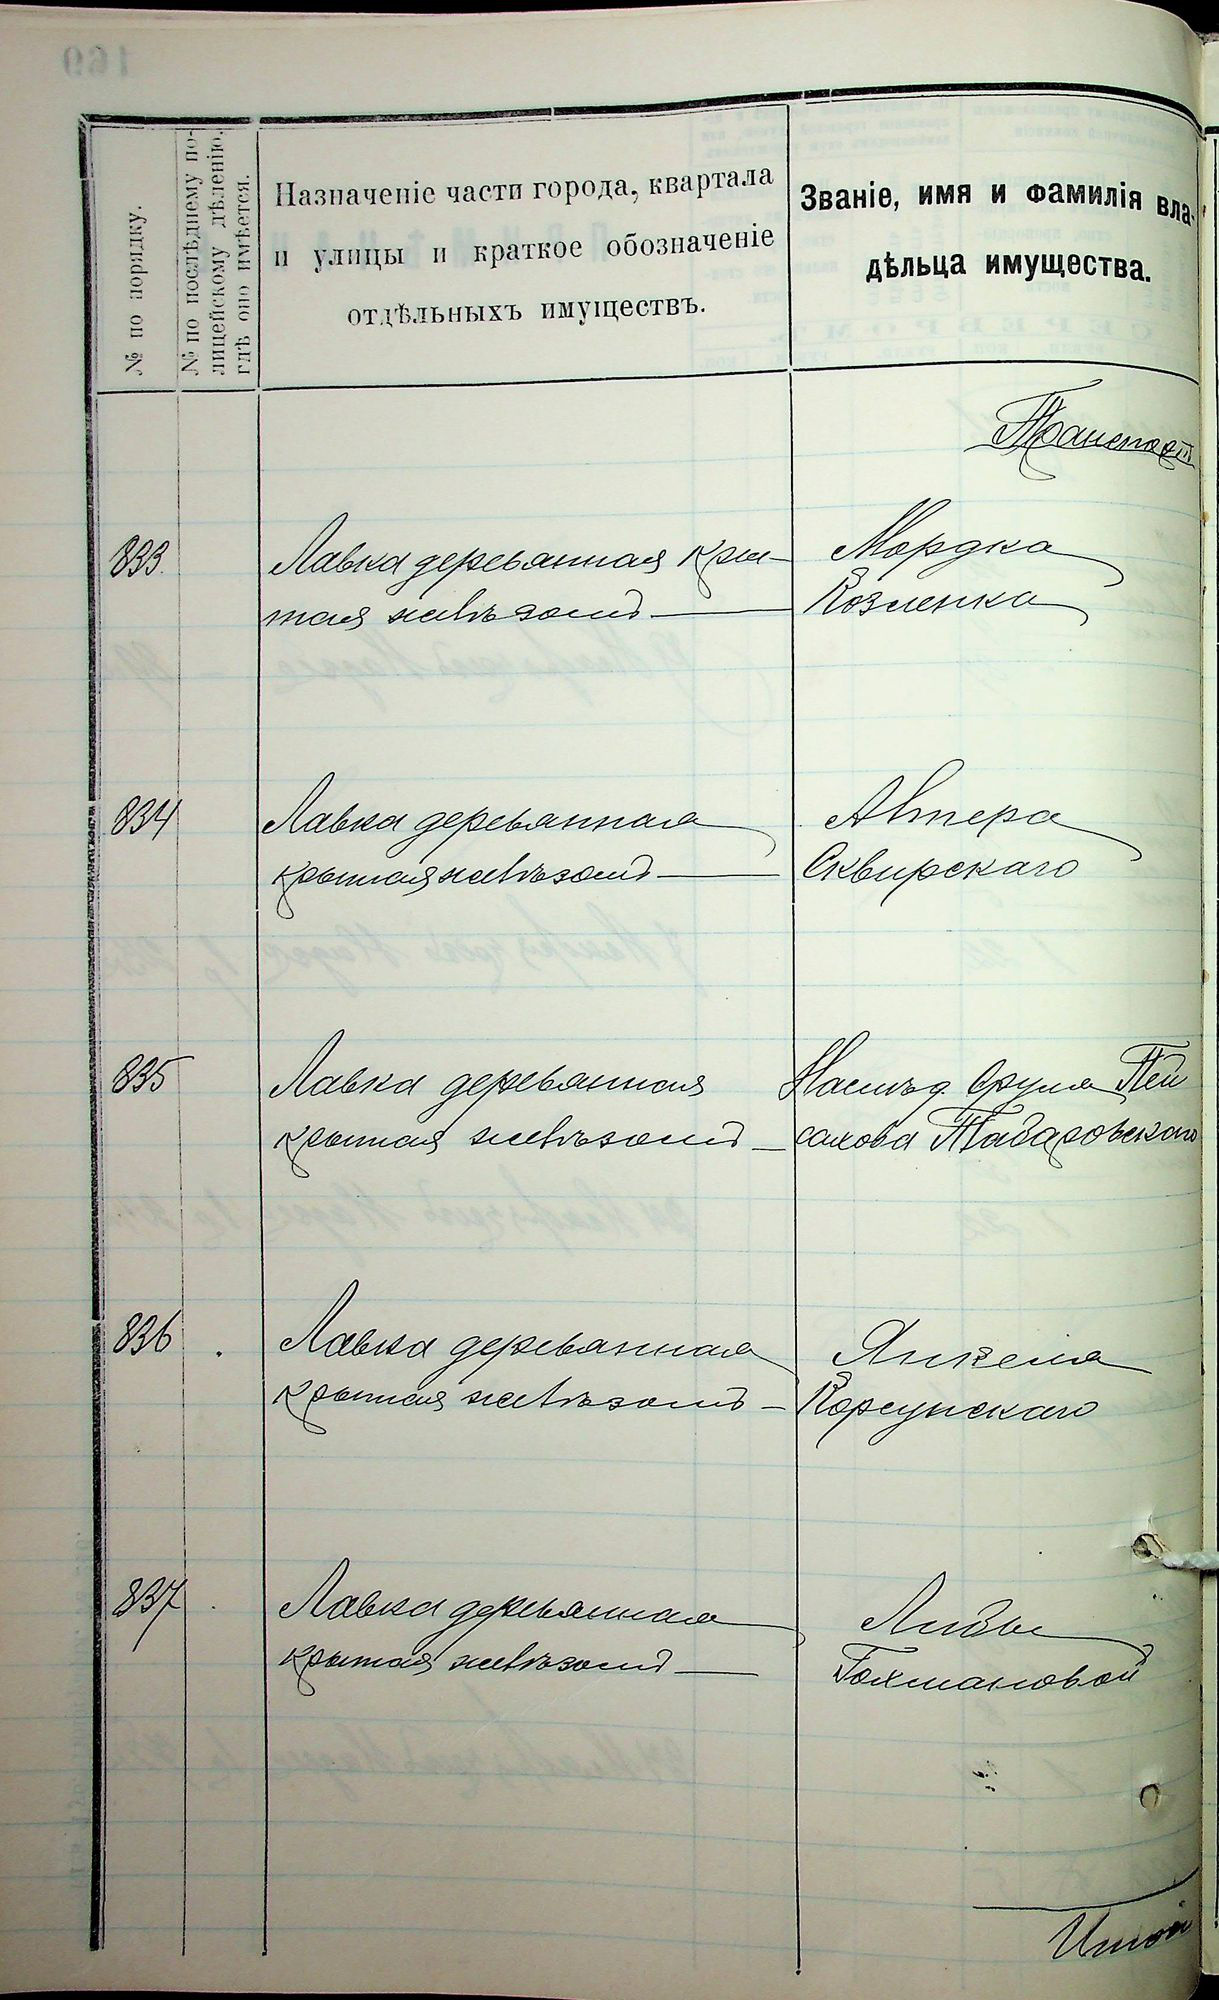 № по порядку.
№ по послѣднему по-
лицейскому дѣленію,
гдѣ оно имѣется.
Назначеніе части города, квартала
и улицы и краткое обозначеніе
отдѣльныхъ имуществъ.
Званіе, имя и фамилія вла-
дѣльца имущества.
Транспорт
833
Лавка деревянная кры-
тая желѣзомъ
Мордка
Козленка
834
Лавка деревянная
крытая желѣзомъ
Автера
Сквирскаго
835
Лавка деревянная
крытая желѣзомъ
Наслѣд. Срула Пей
сахова Табаровскаго
836
Лавка деревянная
крытая желѣзомъ
Янкеля
Корсунскаго
837
Лавка деревянная
крытая желѣзомъ
Либы
Гохмановой
Итого